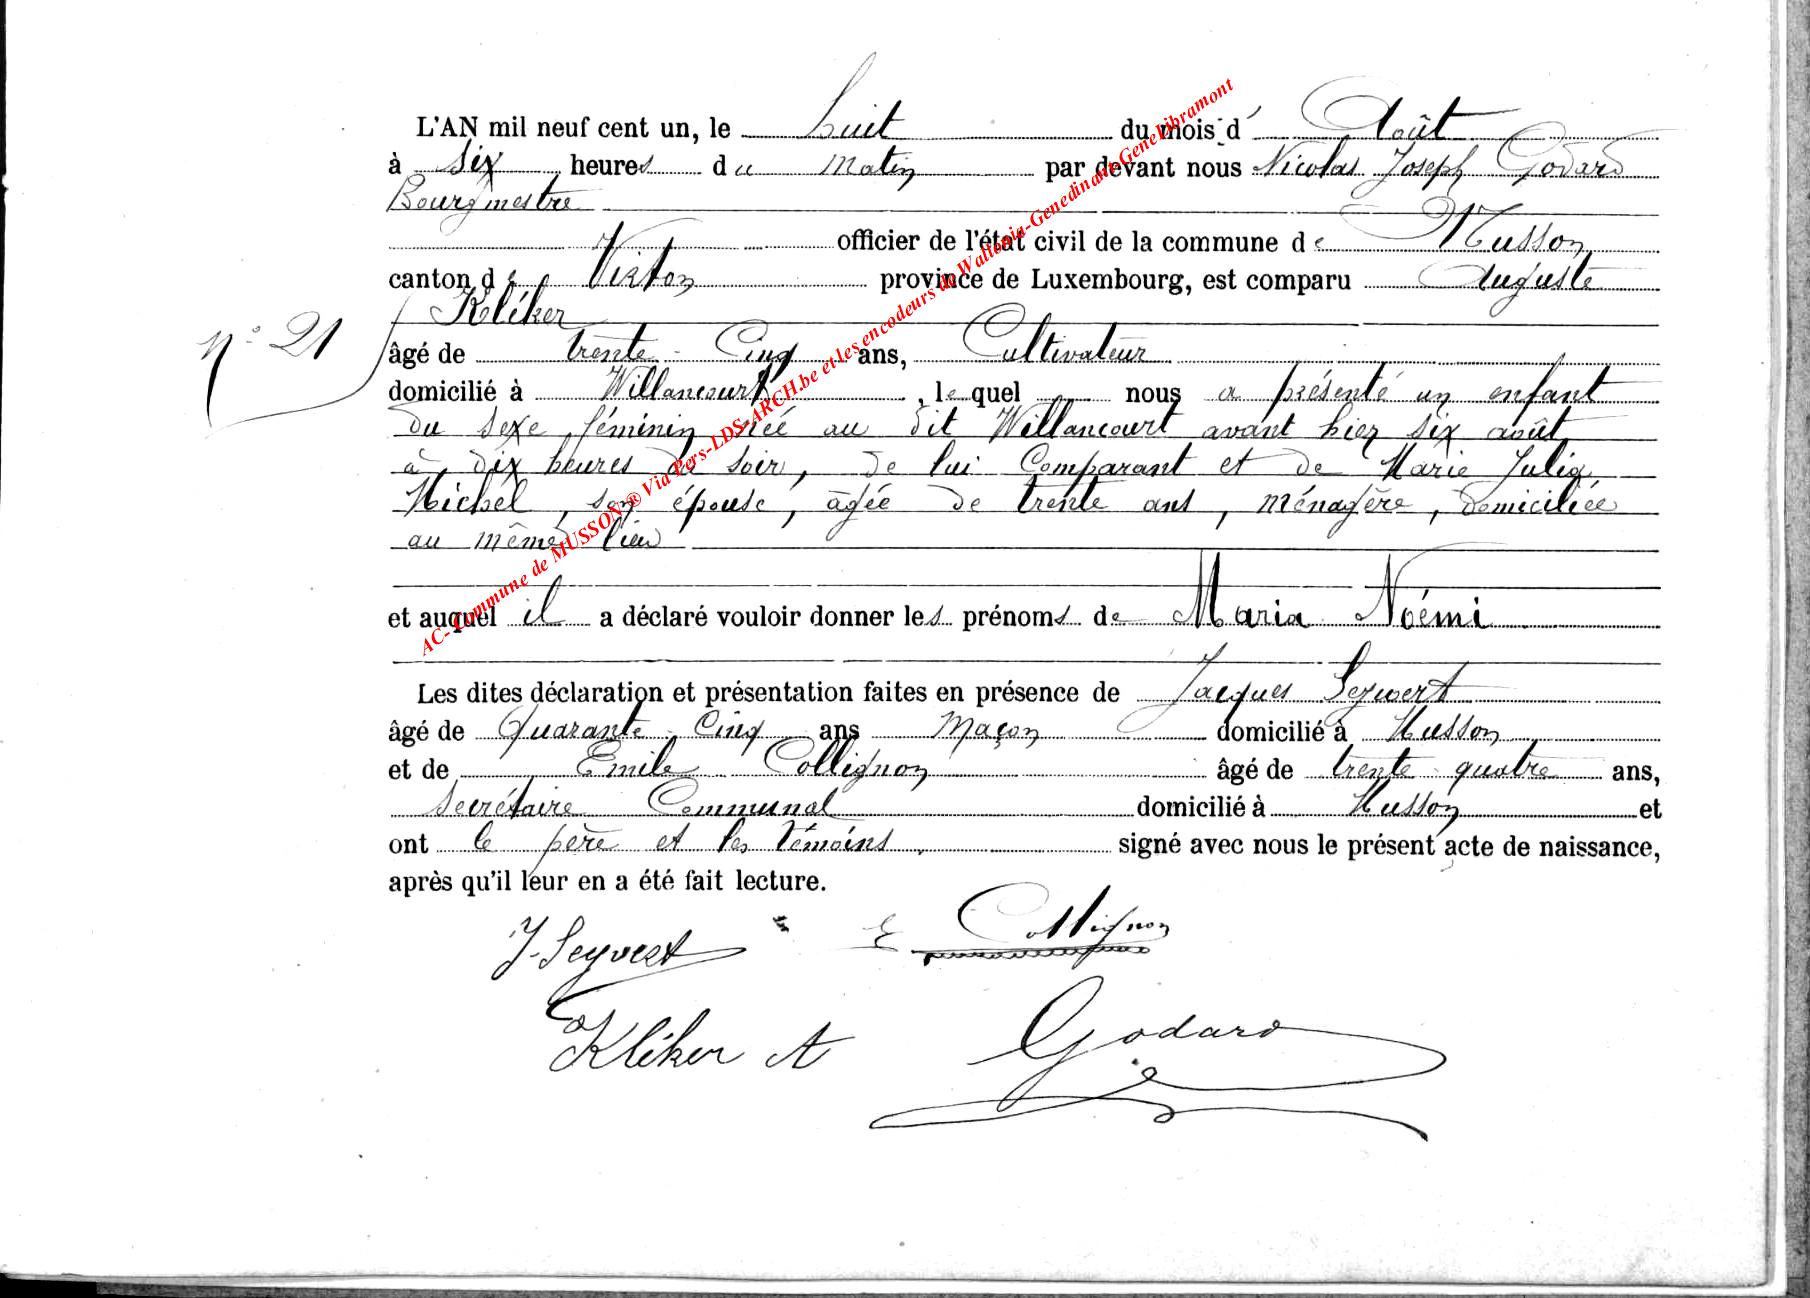 L'AN mil neuf cent un, le huit du mois d' Août
à six heures du matin par devant nous Nicolas Joseph Godard
Bourgmestre
officier de l'état civil de la commune de Musson
canton de Virton province de Luxembourg, est comparu Auguste
Kléker
n° 21
âgé de trente-cinq ans, Cultivateur
domicilié à Willancourt, lequel nous a présenté un enfant
du sexe féminin née au dit Willancourt avant hier six août
à dix heures du soir, de lui Comparant et de Marie Julie
Michel, son épouse, âgée de trente ans, ménagère, domiciliée
au même lieu
et auquel il a déclaré vouloir donner les prénoms de Maria Noémi
Les dites déclaration et présentation faites en présence de Jacques Seywert
âgé de Quarante-Cinq ans Maçon domicilié à Musson
et de Emile Collignon âgé de trente-quatre ans,
secrétaire Communal domicilié à Musson et
ont le père et les témoins. signé avec nous le présent acte de naissance,
après qu'il leur en a été fait lecture.
J. Seyvert E Collignon
Kléker A Godard
AC- Commune de MUSSON® Via Pers-LDS-ARCH.be et les encodeurs de Wallonia-Genedinant-GeneLibramont